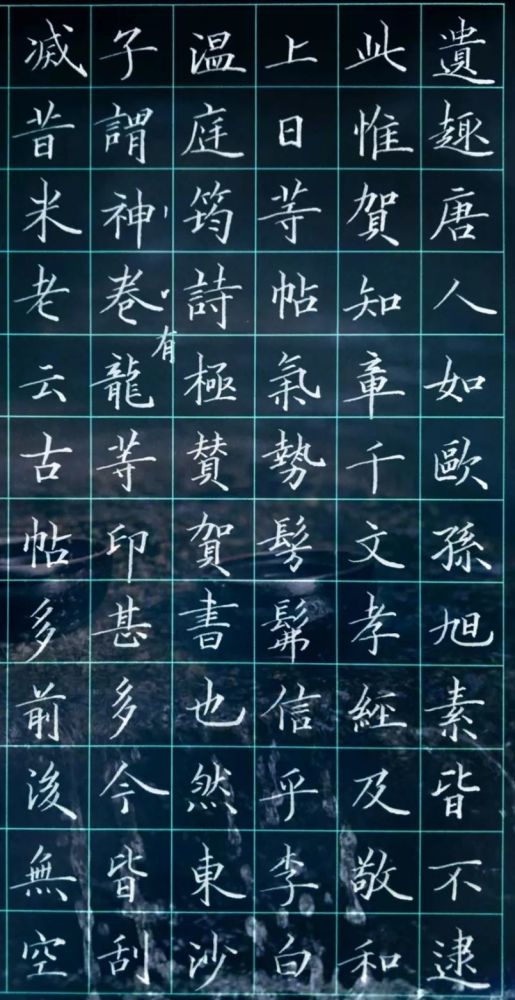 遺趣唐人如歐孫旭素皆不逮
此惟賀知章千文孝經及敬和
上日等帖氣勢髣髴信乎李白
温庭筠詩極賛賀書也然東沙
子謂神卷有龍等印甚多今皆刮
滅昔米老云古帖多前後無空